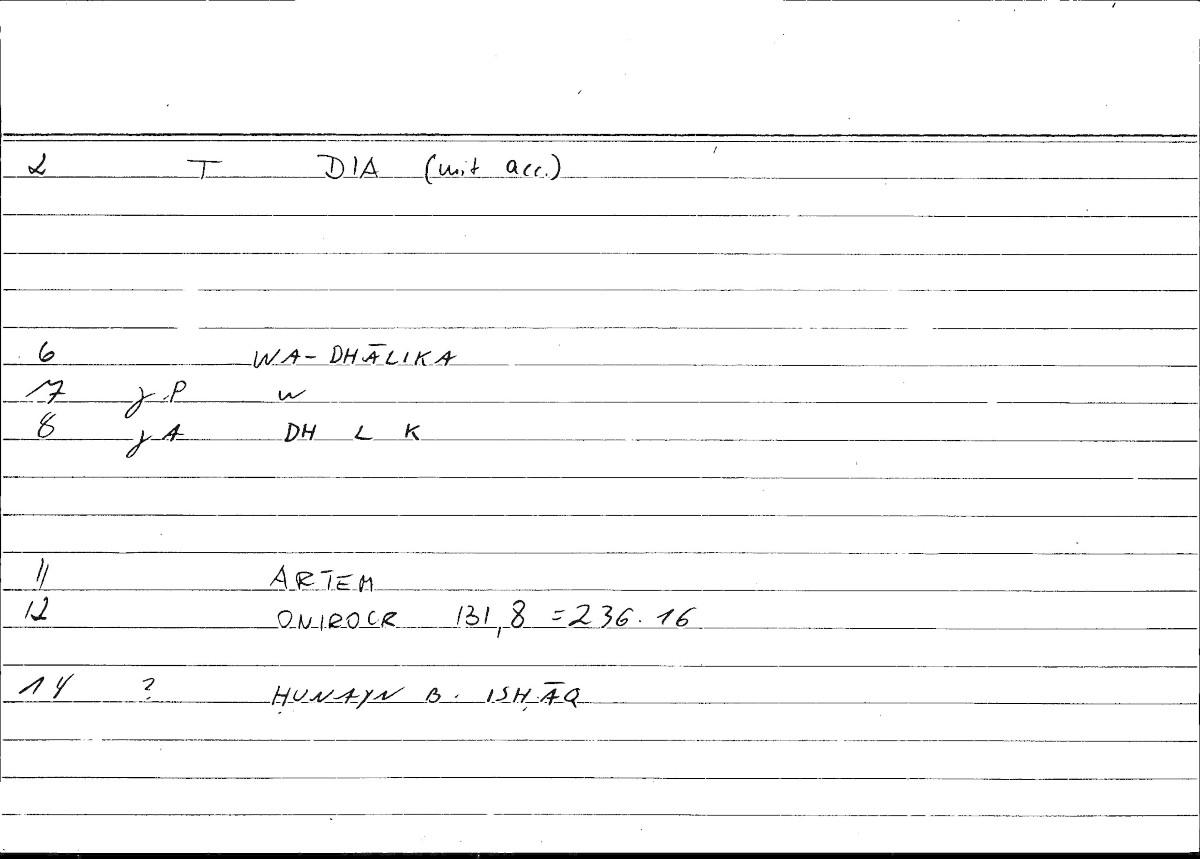 2 T DIA (mit acc.)
6 WA-DHĀLIKA
7 γP w
8 γA DH L K
11 ARTEM
12 ONIROCR 131,8 = 236.16
14 ? ḤUNAYN B. ISḤĀQ